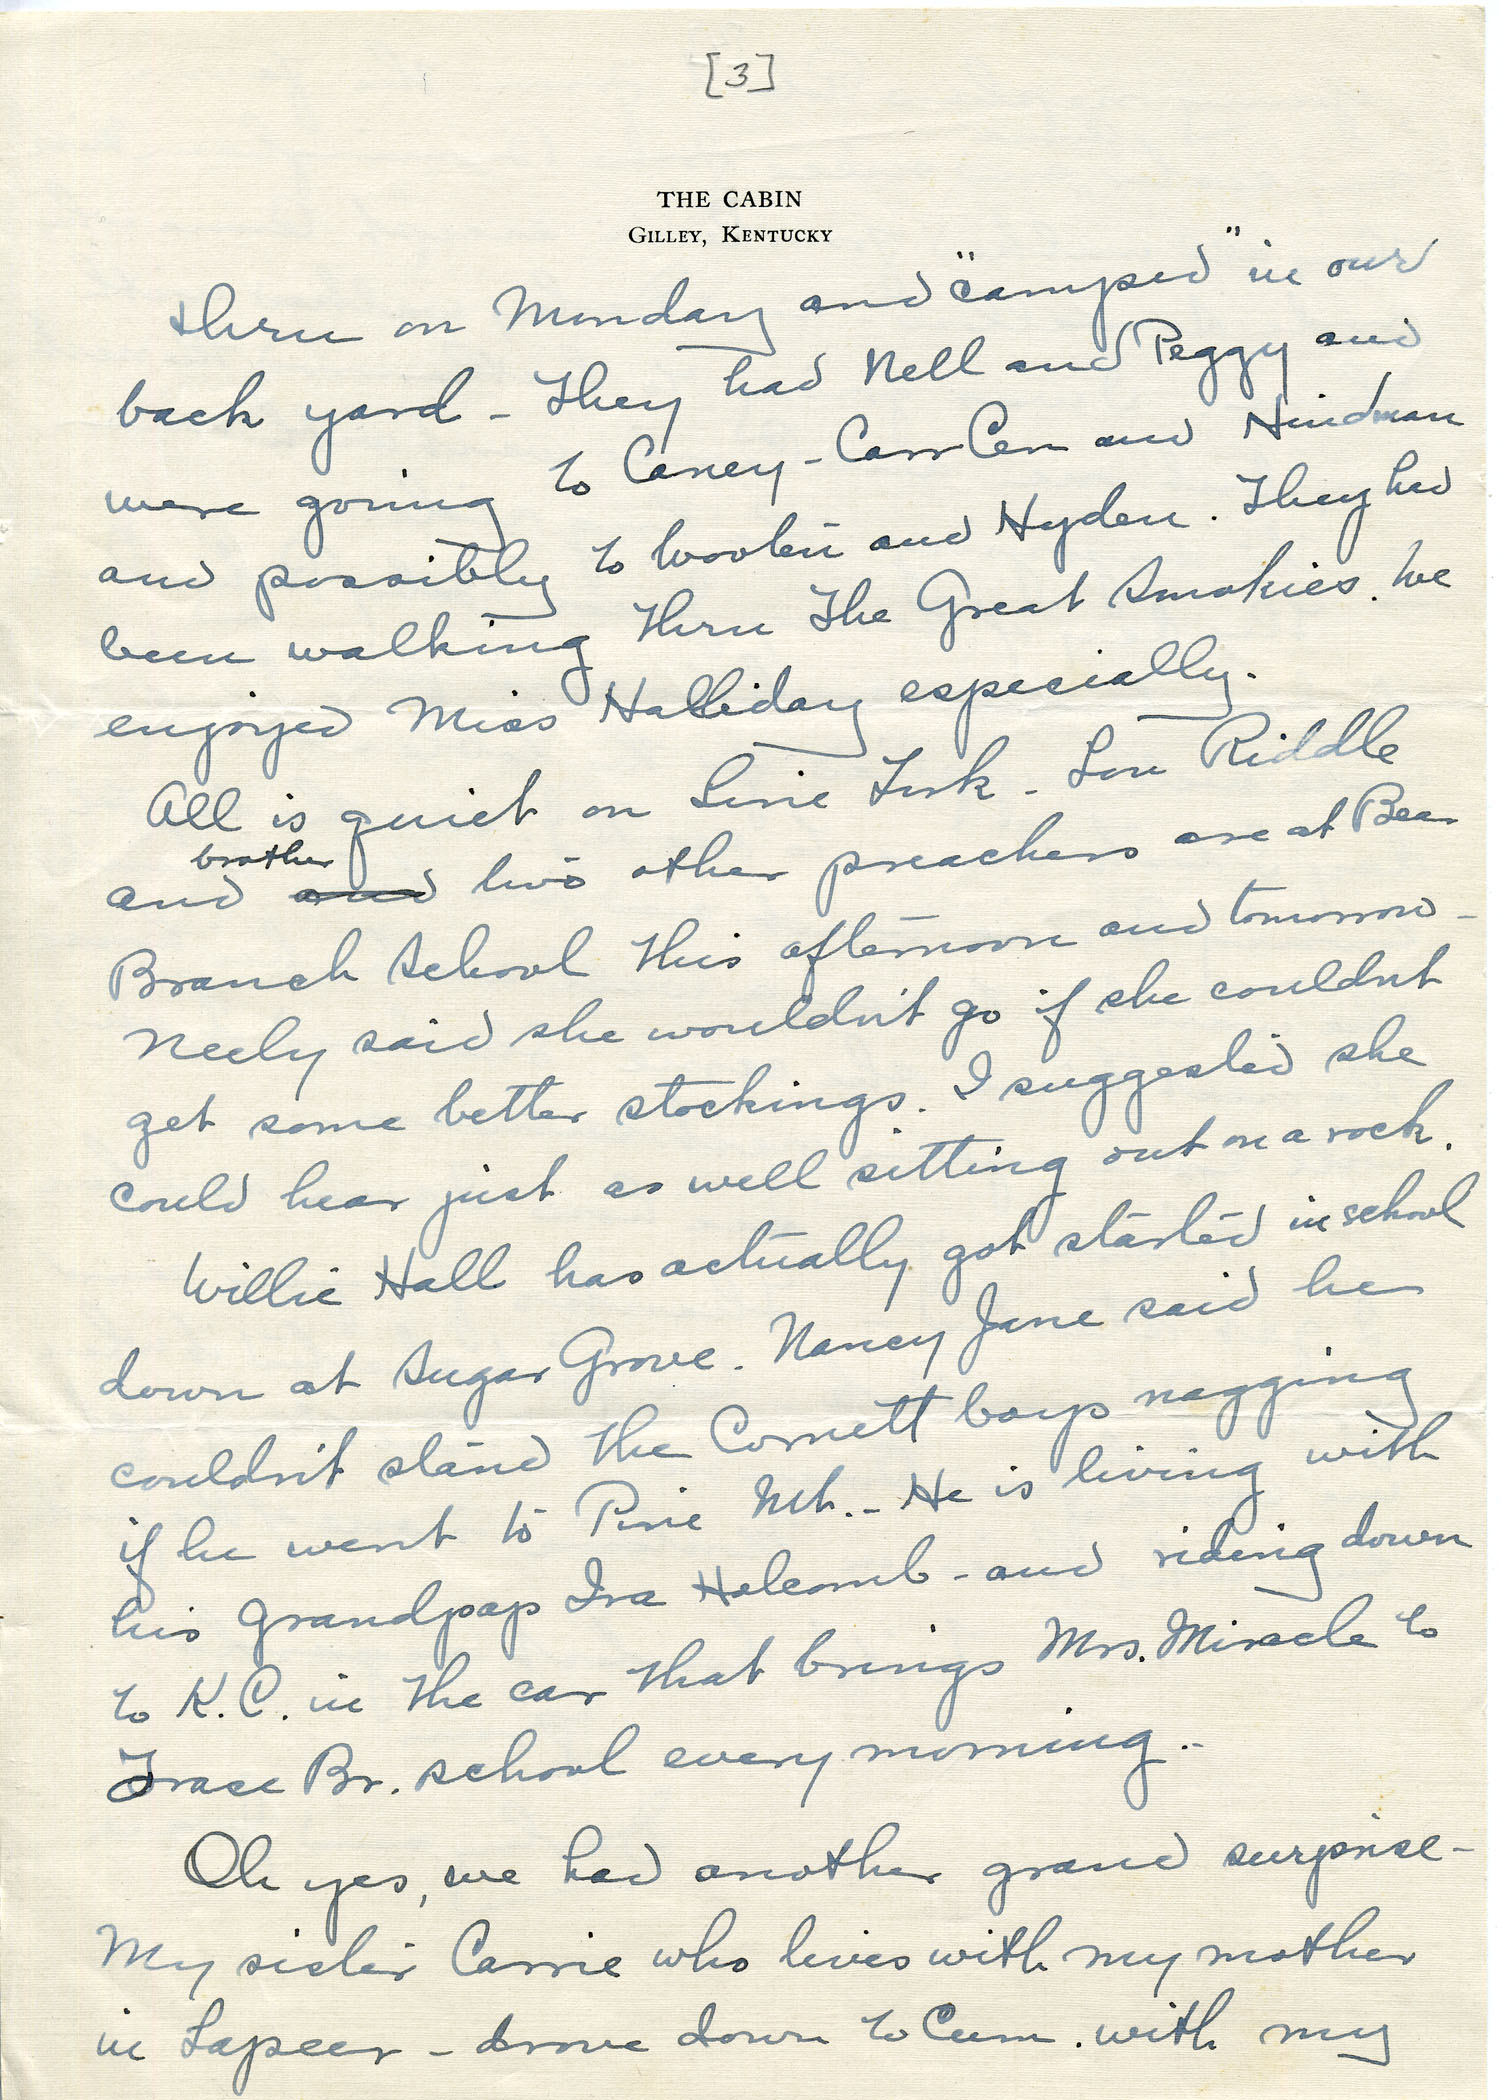 [3]
THE CABIN
GILLEY, KENTUCKY
thru on Monday and "camped" in our
back yard - They had Nell and Peggy and
were going to Caney - Carr Cen and Hindman
and possibly to Wooton and Hyden. They had
been walking thru the Great Smokies. We
enjoyed Miss Halliday especially.
All is quiet on Line Fork - Lon Riddle
brother
and and two other preachers are at Bear
Branch School this afternoon and tomorrow -
Neely said she wouldn't go if she couldn't
get some better stockings. I suggested she
could hear just as well sitting out on a rock.
Willie Hall has actually got started in school
down at Sugar Grove. Nancy Jane said he
couldn't stand the Cornett boys nagging
if he went to Pine Mt. - He is living with
his Grandpap Ira Holcomb - and riding down
to K.C. in the car that brings Mrs. Miracle to
Trace Br. school every morning..
Oh yes, we had another grand surprise -
My sister Carrie who lives with my mother
in Lapeer - drove down to Cum. with my